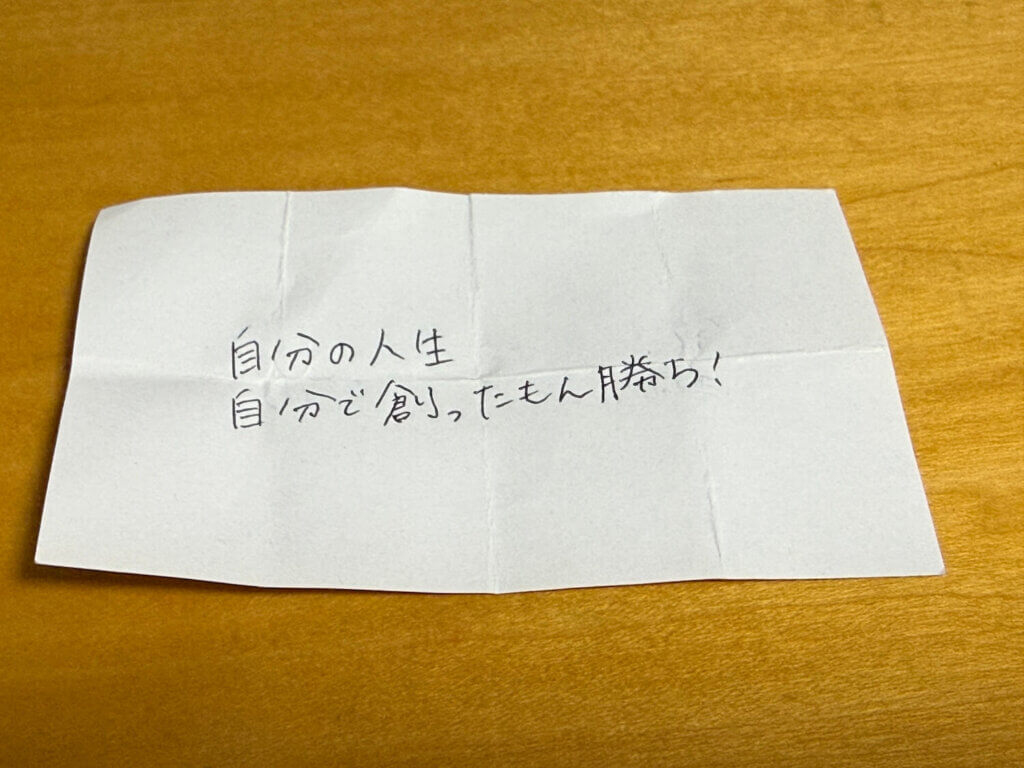 自分の人生
自分で創ったもん勝ち!